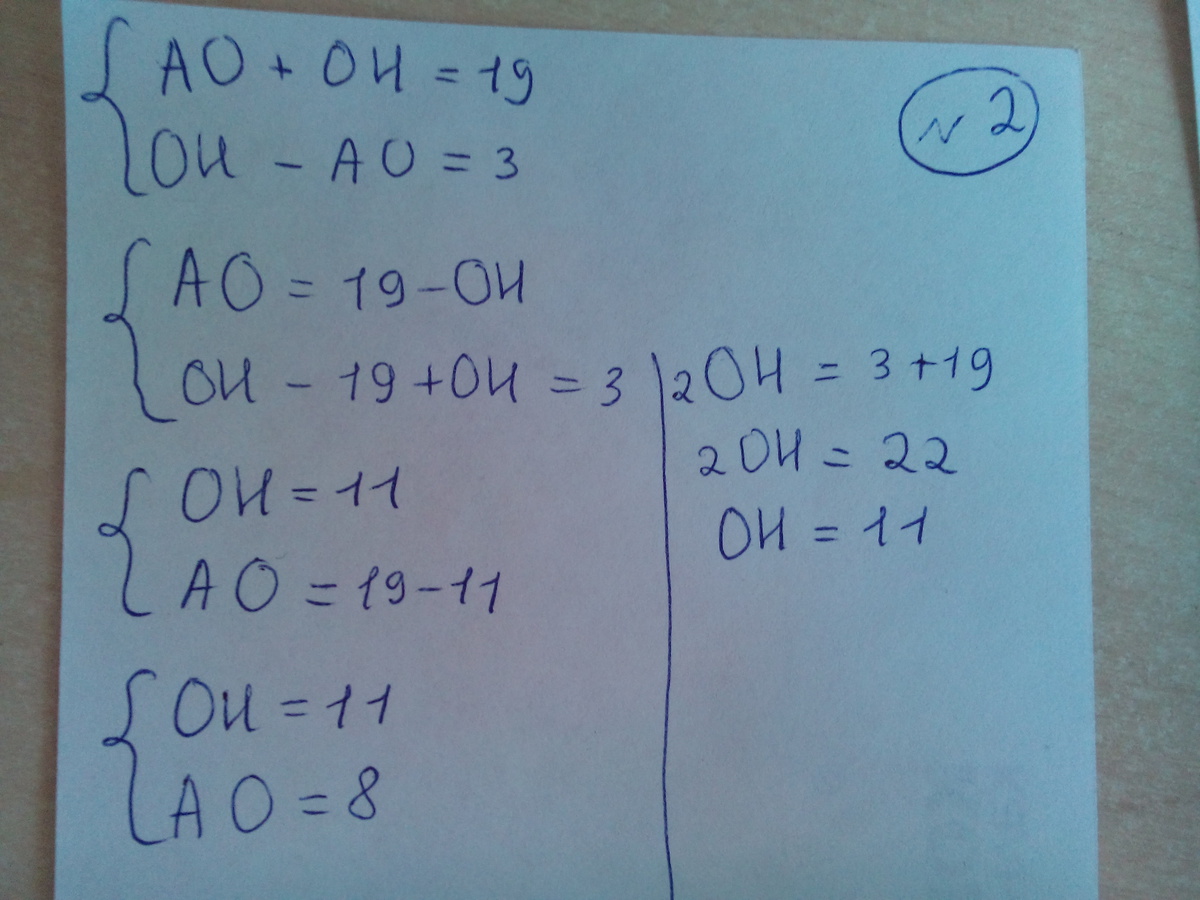 AO + OH = 19
OH - AO = 3
N 2
AO = 19 - OH
OH - 19 + OH = 3
2OH = 3 + 19
2OH = 22
OH = 11
OH = 11
AO = 19 - 11
OH = 11
AO = 8